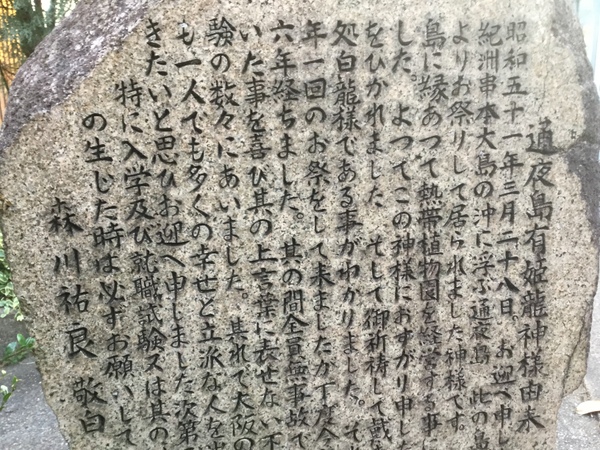 通夜島有姫龍神様由来
昭和五十一年三月二十八日。お迎へ申し
紀洲串本大島の沖に浮ぶ通夜島 此の島
よりお祭りして居られました神様です。
島に縁あつて熱帯植物園を経営する事に
した。よつてこの神様におすがり申した
をひかれました そして御祈祷して戴き
処白龍様である事がわかりました。それ
年一回のお祭をして来ましたが丁度今
六年経ちました。其の間全員無事故で
いた事を喜び其の上言葉に表せない不
験の数々にあいました。其れで大阪の
も一人でも多くの幸せと立派な人を出
きたいと思ひお迎へ申しました次第
特に入学及び就職試験又は其の
の生じた時は必ずお願いして
森川祐良 敬白